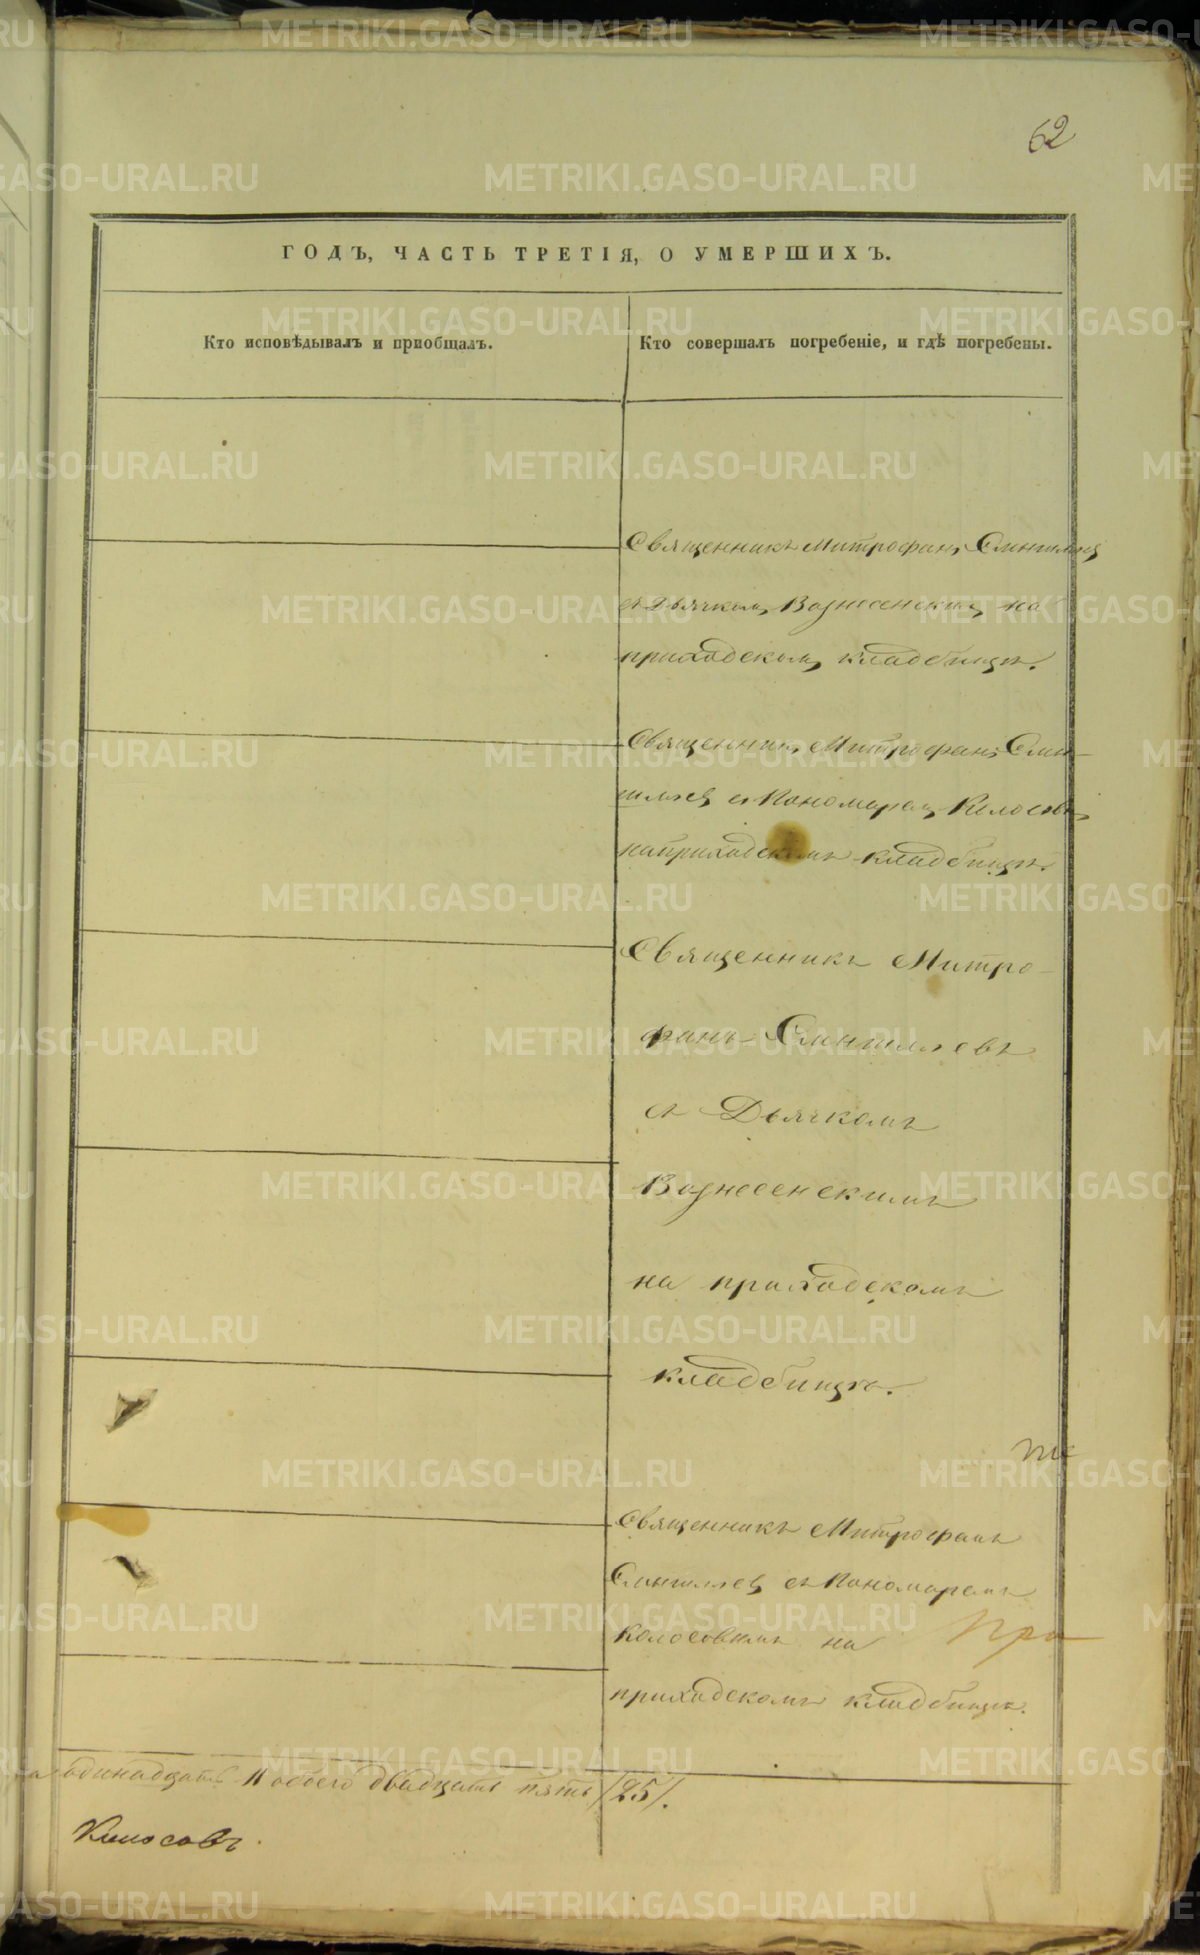 62
ГОДЪ, ЧАСТЬ ТРЕТІЯ, О УМЕРШИХЪ.
Кто исповѣдывалъ и пріобщалъ.
Кто совершалъ погребеніе, и гдѣ погребены.
Священникъ Митрофанъ
съ Дьячкомъ Вознесенскимъ на
приходскомъ кладбищѣ.
Священникъ Митрофанъ
съ Пономаремъ Колосовымъ
на приходскомъ кладбищѣ.
Священникъ Митро-
фанъ
съ Дьячкомъ
Вознесенскимъ
на приходскомъ
кладбищѣ.
Священникъ Митрофанъ
съ Пономаремъ
Колосовымъ на При
приходскомъ кладбищѣ.
одинадцать 11 обоего двадцать пять /25/.
Колосовъ.
METRIKI.GASO-URAL.RU